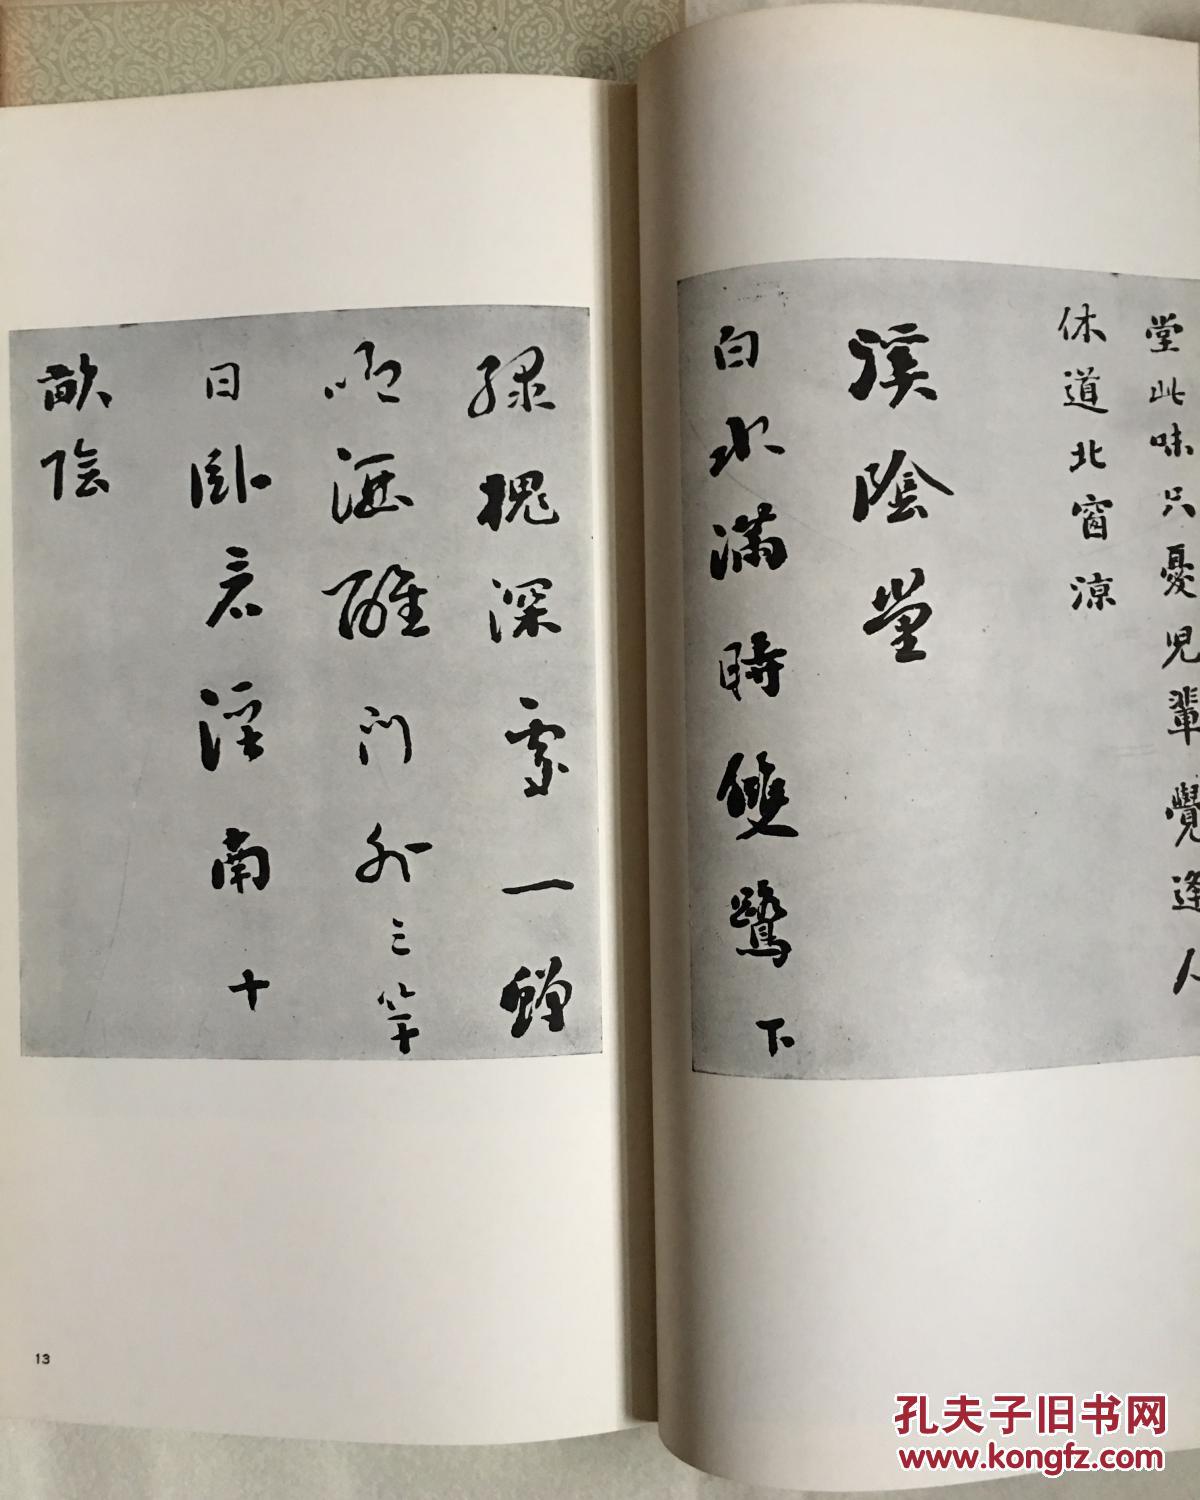 堂此味只憂兒輩覺逢人
休道北窗涼
溪陰堂
白水滿時雙鷺下
綠槐深處一蟬
吟酒醒門外三竿
日臥看溪南十
畝陰
13
孔夫子旧书网
www.kongfz.com